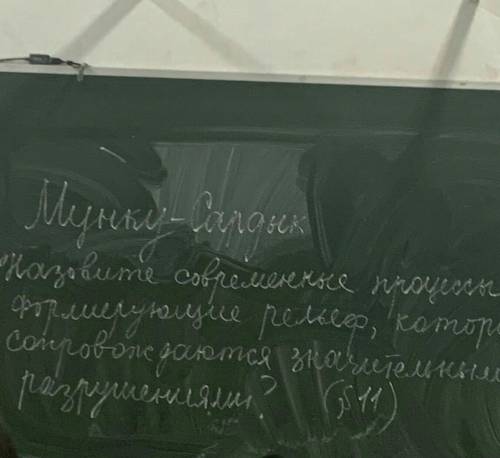 Мунку-Сардык
Назовите современные процессы
формирующие рельеф, котор
сопровождаются значительным
разрушениями? (§ 11)